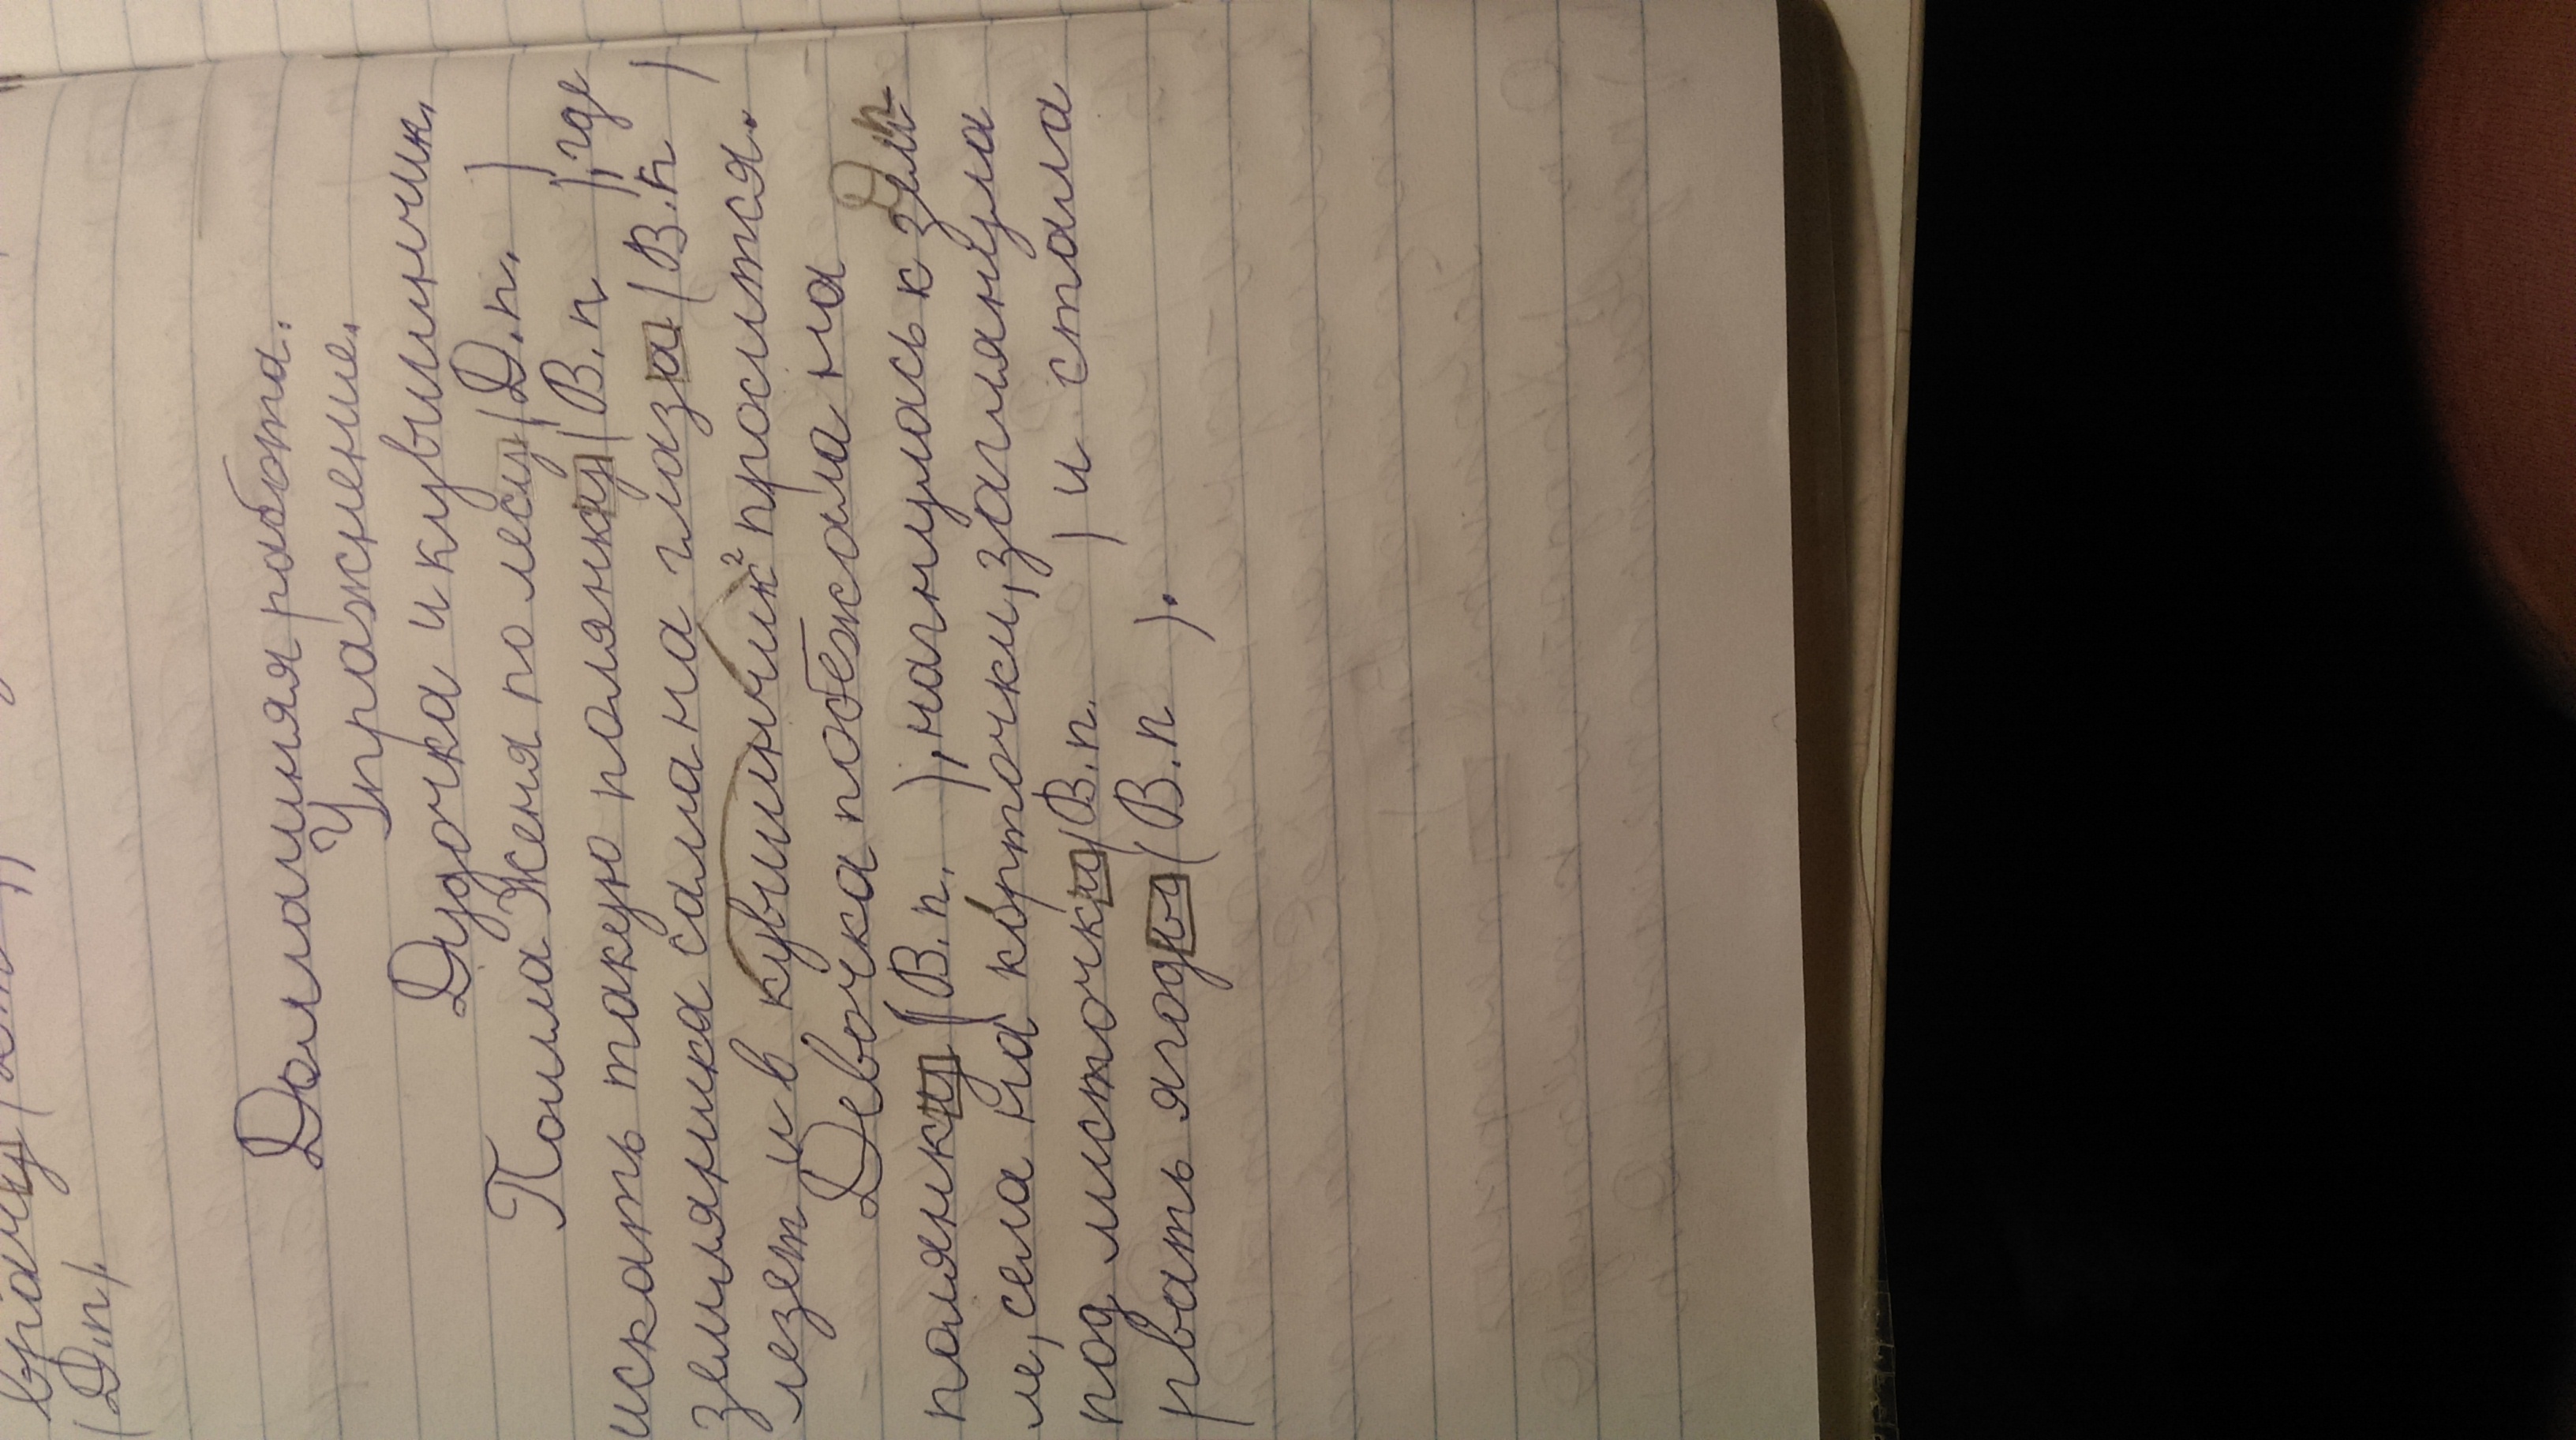 врачу
(Д.п).
Домашняя работа.
Упражнение.
Дудочка и кувшинчик.
Пошла Женя по лесу (Д.п. )
искать такую полянку (В.п ), где
земляника сама на глаза (В.п )
лезет и в кувшинчик² просится.
Девочка побежала на
полянку (В.п. ), нагнулась к зем
ле, села на корточки, заглянула
под листочки (В.п. ) и стала
рвать ягоды (В.п ).